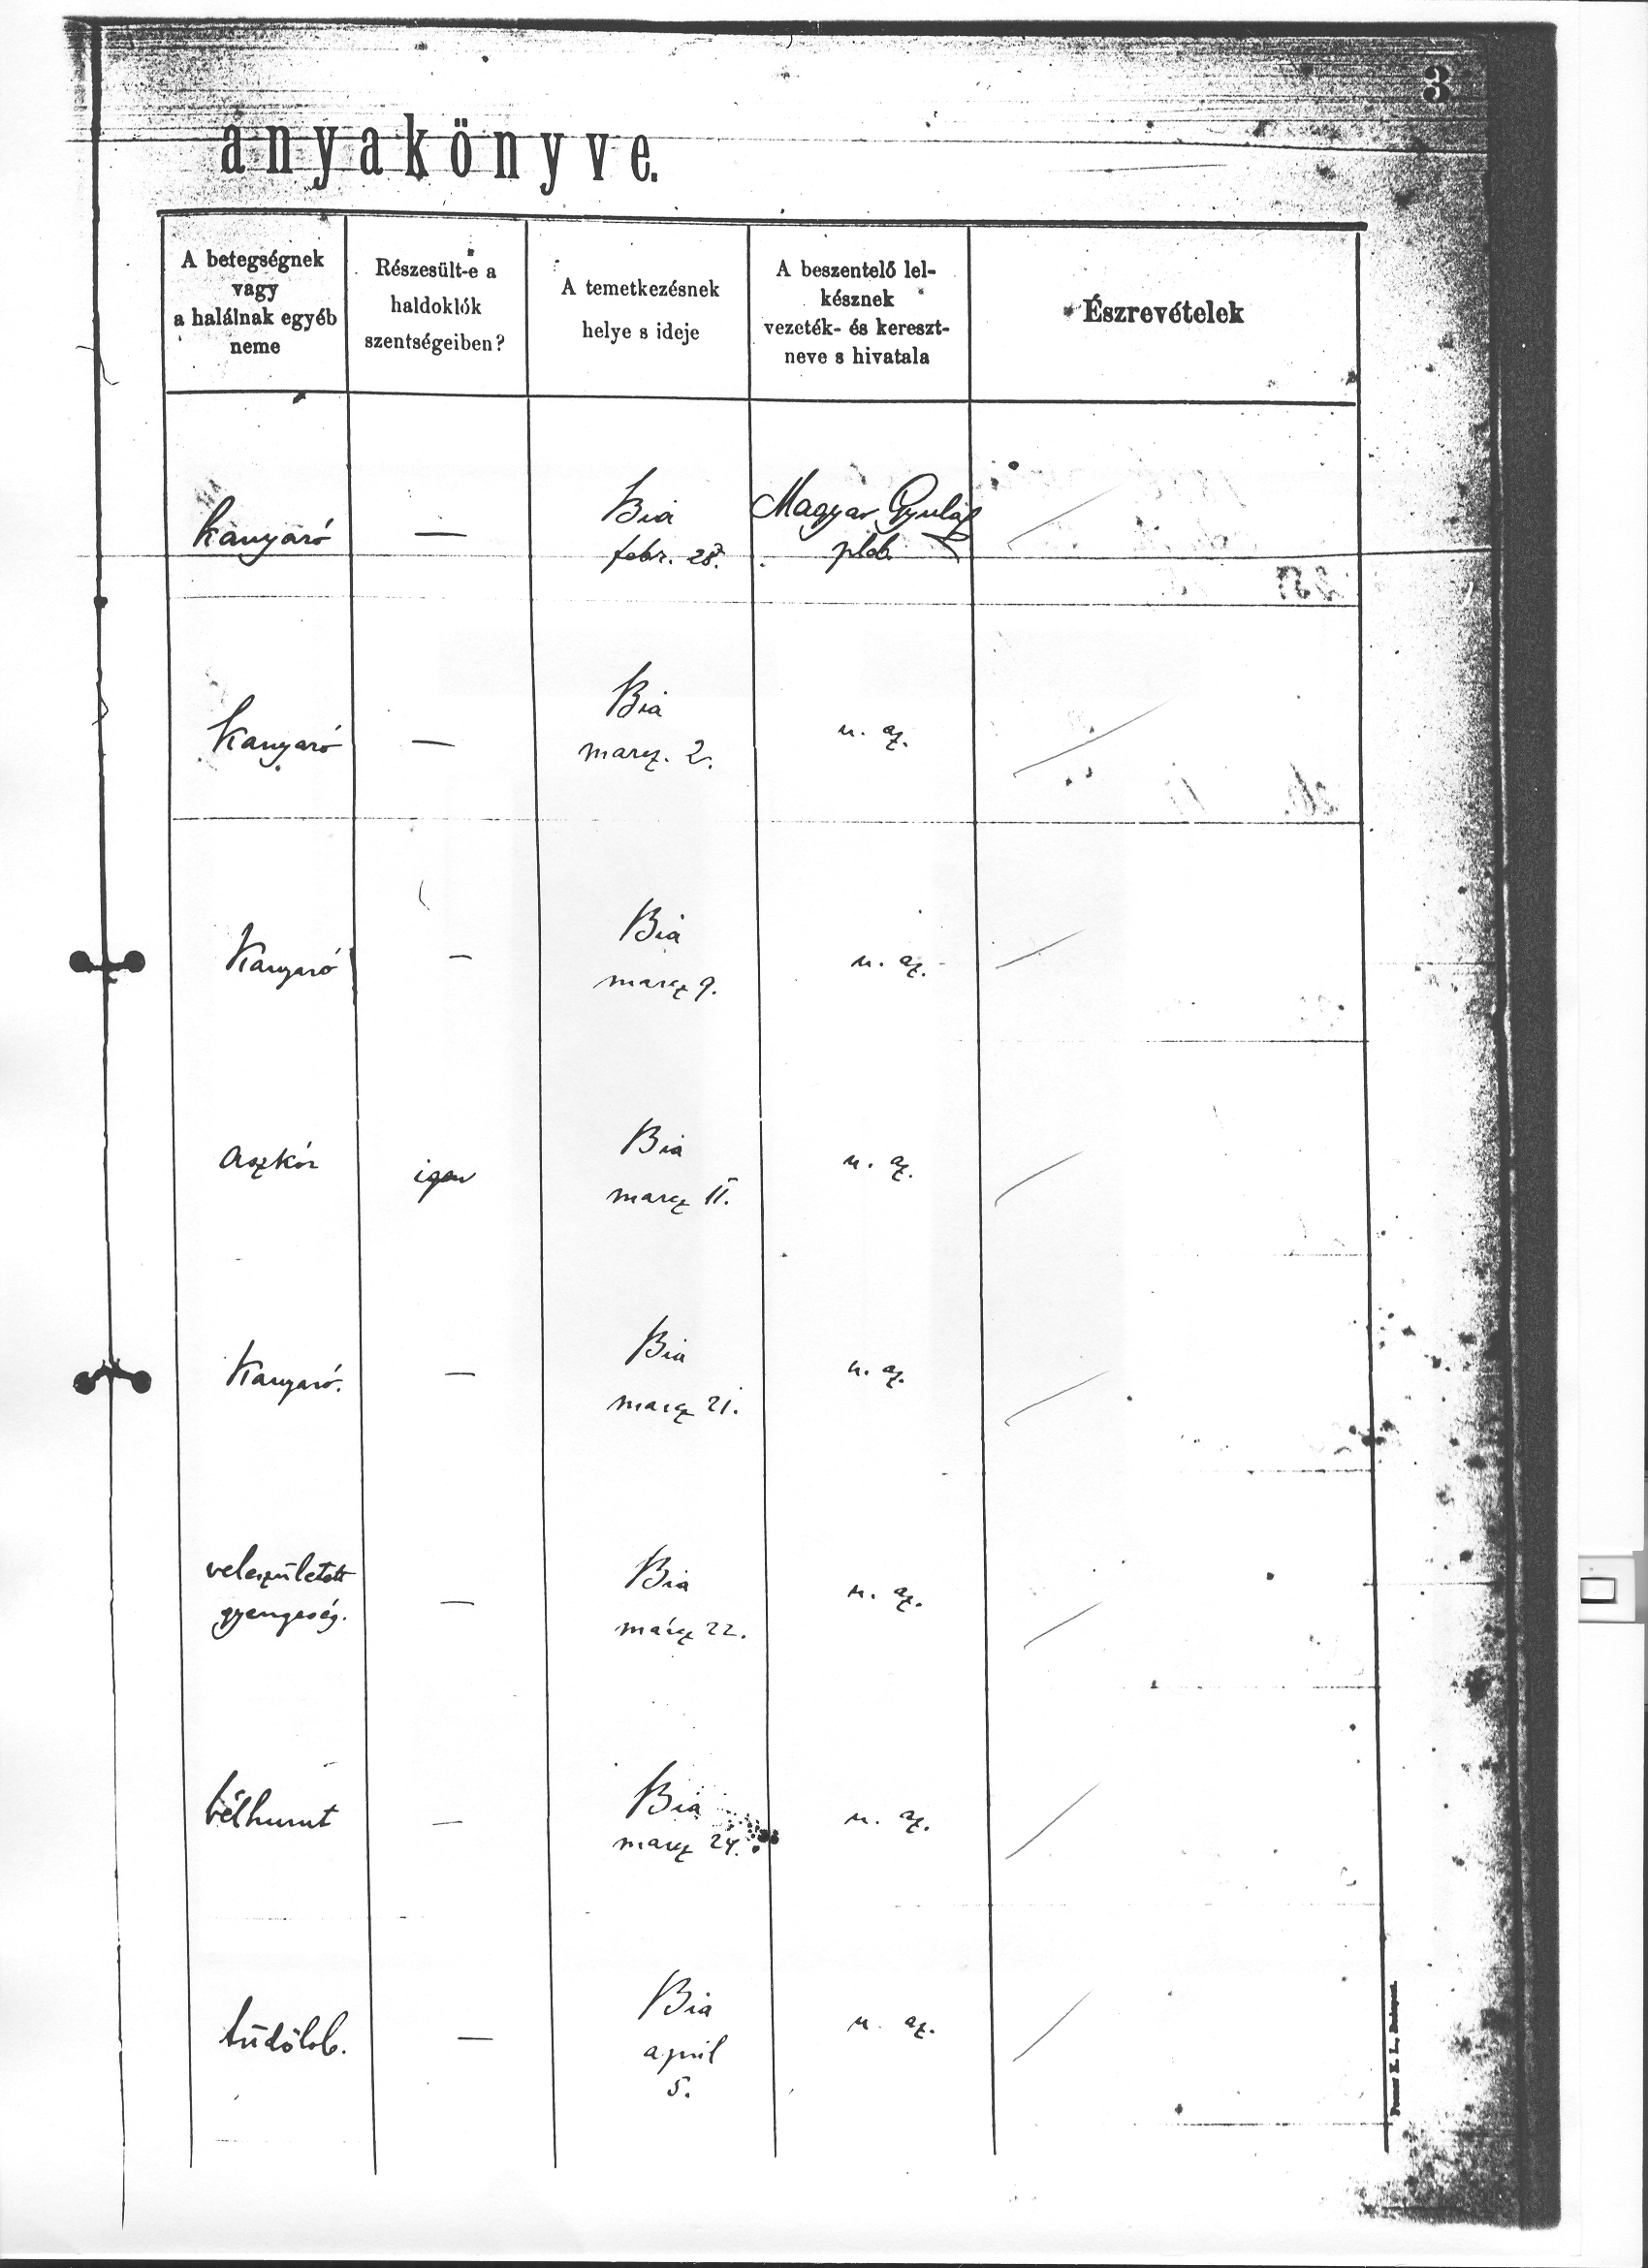 3
anyakönyve.
A betegségnek
vagy
a halálnak egyéb
neme
Részesült-e a
haldoklók
szentségeiben?
A temetkezésnek
helye s ideje
A beszentelő lel-
késznek
vezeték- és kereszt-
neve s hivatala
Észrevételek
kanyaró
—
Bia
febr. 28.
Magyar Gyula
pléb.
Kanyaró
—
Bia
marcz. 2.
u. az.
Kanyaró
—
Bia
marcz 9.
u. az.
aszkór
igen
Bia
marcz 11.
u. az.
Kanyaró.
—
Bia
marcz 21.
u. az.
veleszületett
gyengeség.
—
Bia
márcz 22.
u. az.
bélhurut
—
Bia
marcz 24.
u. az.
tüdőlob.
—
Bia
april
5.
u. az.
Budapest.